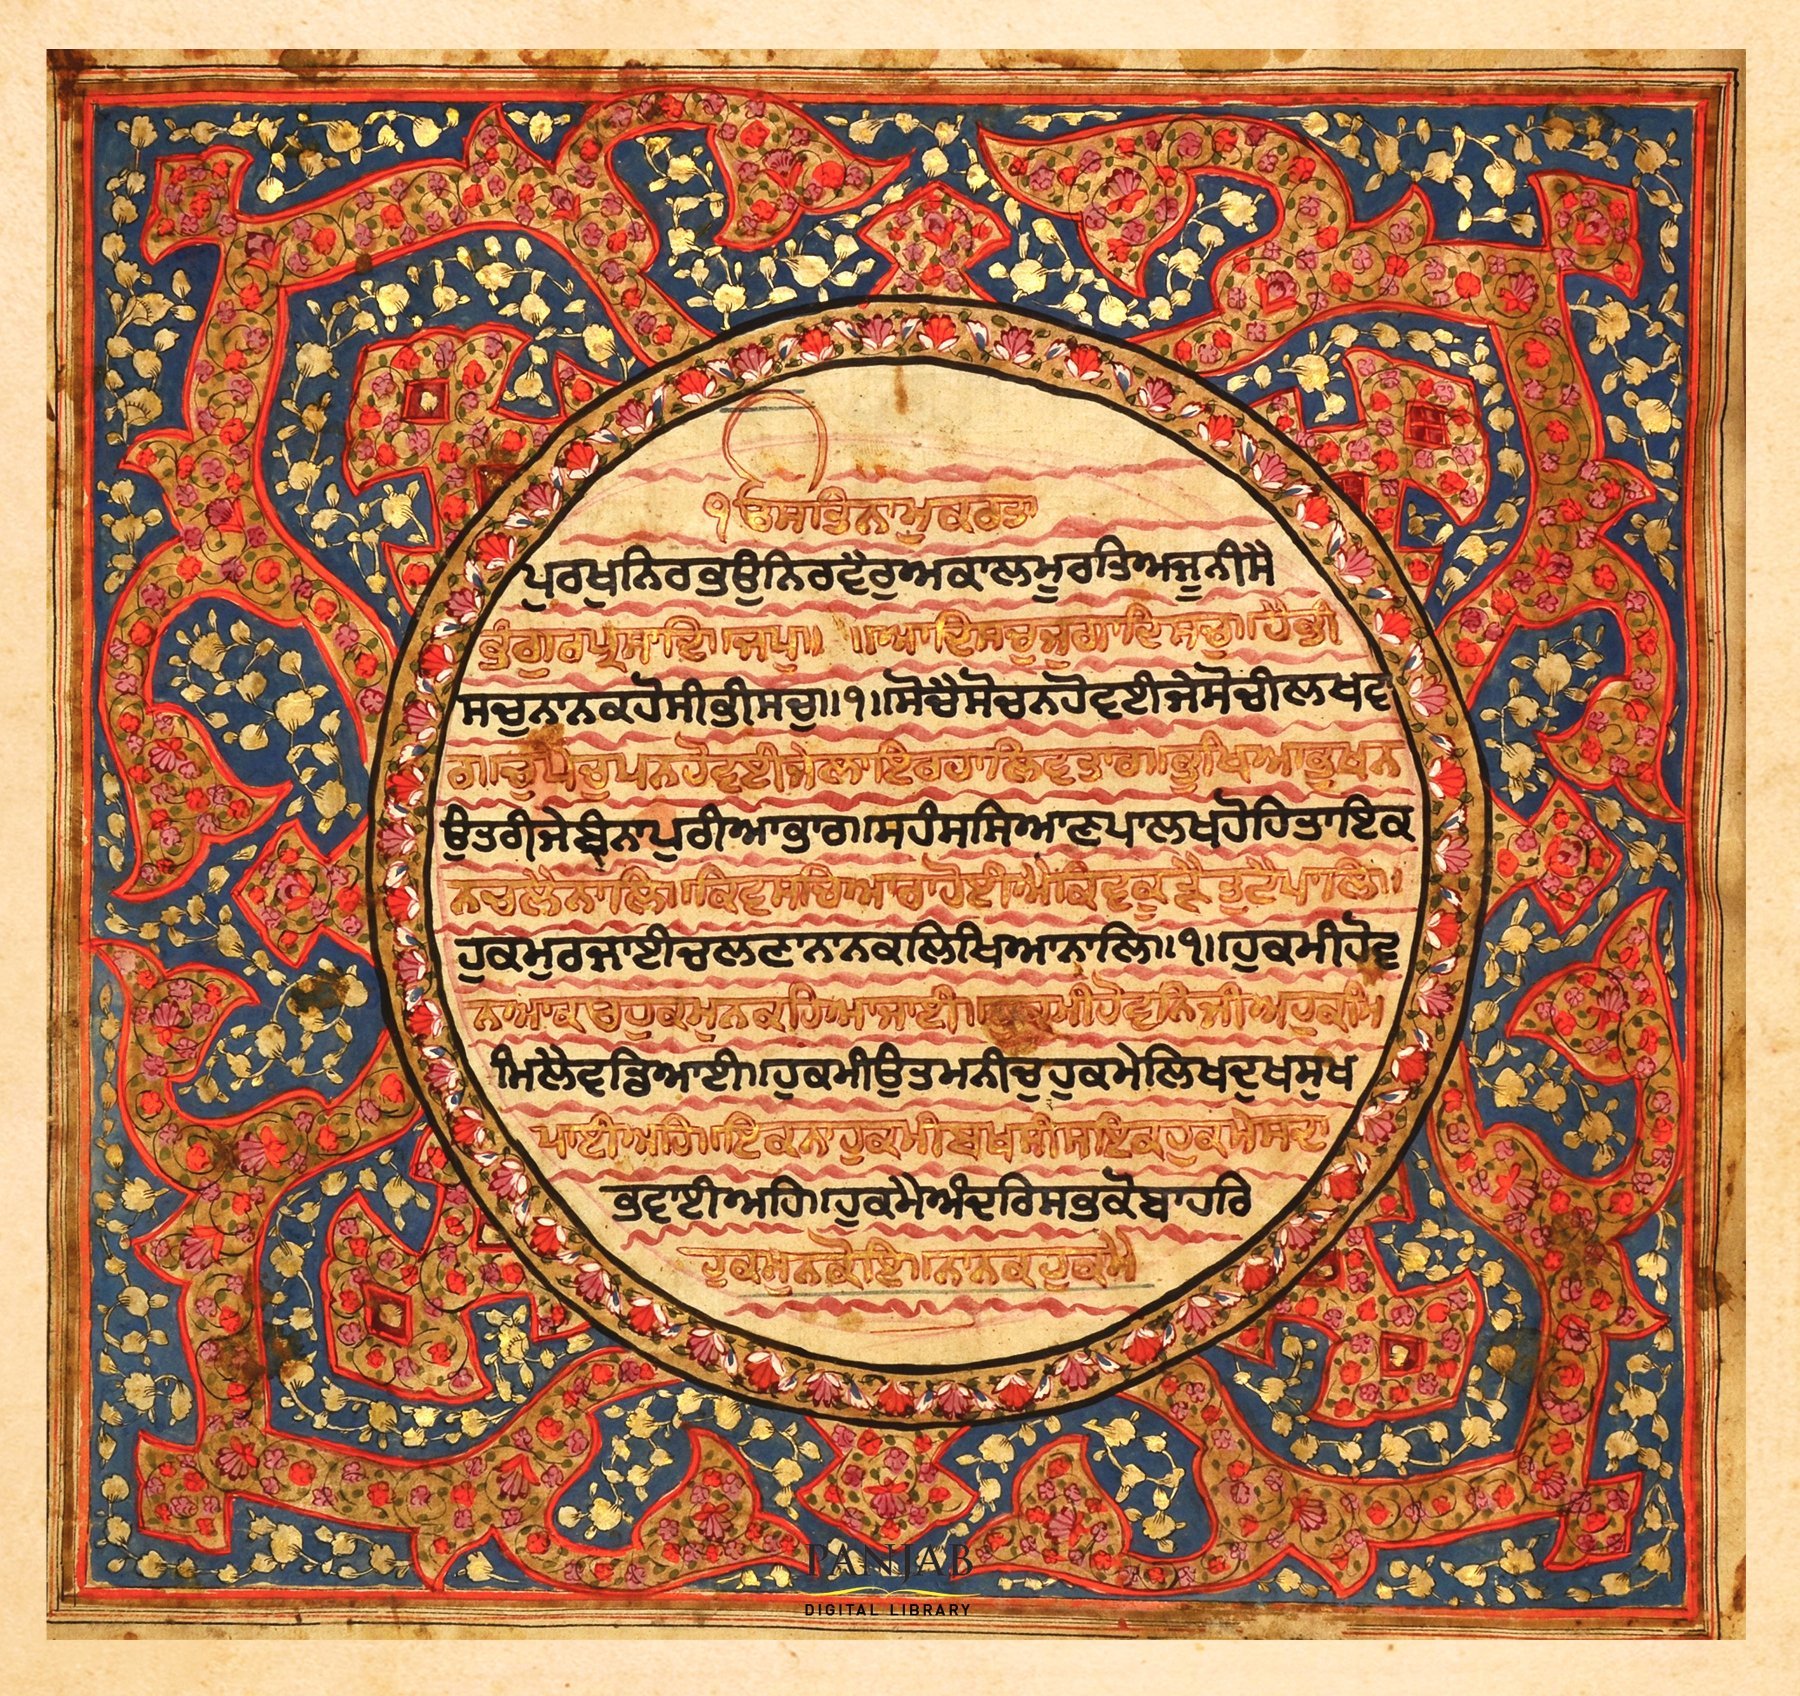 ੴਸਤਿਨਾਮੁਕਰਤਾ
ਪੁਰਖੁਨਿਰਭਉਨਿਰਵੈਰੁਅਕਾਲਮੂਰਤਿਅਜੂਨੀਸੈ
ਭੰਗੁਰਪ੍ਰਸਾਦਿ॥ਜਪੁ॥ ॥ਆਦਿਸਚੁਜੁਗਾਦਿਸਚੁ॥ਹੈਭੀ
ਸਚੁਨਾਨਕਹੋਸੀਭੀਸਚੁ॥੧॥ਸੋਚੈਸੋਚਨਹੋਵਈਜੇਸੋਚੀਲਖਵ
ਰ॥ਚੁਪੈਚੁਪਨਹੋਵਈਜੇਲਾਇਰਹਾਲਿਵਤਾਰ॥ਭੁਖਿਆਭੁਖਨ
ਉਤਰੀਜੇਬੰਨਾਪੁਰੀਆਭਾਰ॥ਸਹੰਸਸਿਆਣਪਾਲਖਹੋਹਿਤਾਇਕ
ਨਚਲੈਨਾਲਿ॥ਕਿਵਸਚਿਆਰਾਹੋਈਐਕਿਵਕੂੜੈਤੁਟੈਪਾਲਿ॥
ਹੁਕਮੁਰਜਾਈਚਲਣਾਨਾਨਕਲਿਖਿਆਨਾਲਿ॥੧॥ਹੁਕਮੀਹੋਵ
ਨਆਕਾਰਹੁਕਮੁਨਕਹਿਆਜਾਈ॥ਹੁਕਮੀਹੋਵਨਿਜੀਅਹੁਕਮਿ
ਮਿਲੈਵਡਿਆਈ॥ਹੁਕਮੀਉਤਮਨੀਚੁਹੁਕਮੇਲਿਖਦੁਖਸੁਖ
ਪਾਈਅਹਿ॥ਇਕਨਾਹੁਕਮੀਬਖਸੀਸਇਕਹੁਕਮੇਸਦਾ
ਭਵਾਈਅਹਿ॥ਹੁਕਮੈਅੰਦਰਿਸਭੁਕੋਬਾਹਰਿ
ਹੁਕਮੁਨਕੋਇ॥ਨਾਨਕਹੁਕਮੈ
PANJAB
DIGITAL LIBRARY